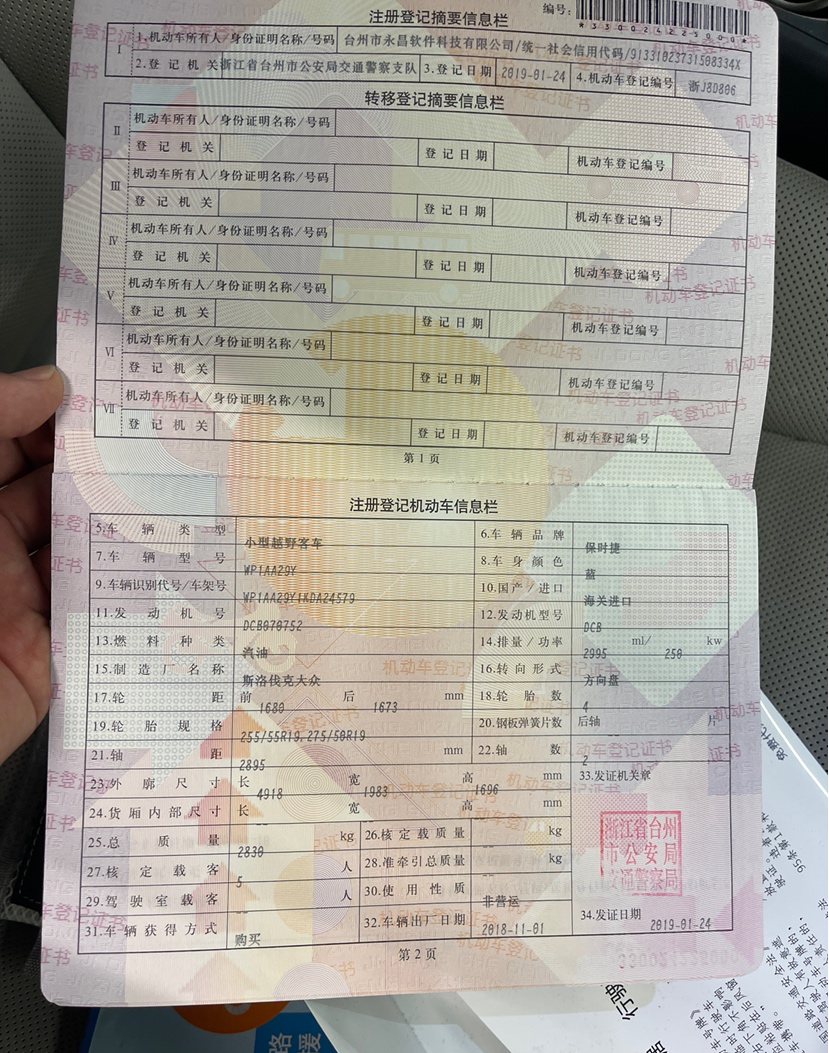 注册登记摘要信息栏
编号:
*330024225000*
I 1.机动车所有人/身份证明名称/号码 台州市永昌软件科技有限公司/统一社会信用代码/91331023731508334X
2.登记机关 浙江省台州市公安局交通警察支队 3.登记日期 2019-01-24 4.机动车登记编号 浙J8D806
转移登记摘要信息栏
II 机动车所有人/身份证明名称/号码
登记机关 登记日期 机动车登记编号
III 机动车所有人/身份证明名称/号码
登记机关 登记日期 机动车登记编号
IV 机动车所有人/身份证明名称/号码
登记机关 登记日期 机动车登记编号
V 机动车所有人/身份证明名称/号码
登记机关 登记日期 机动车登记编号
VI 机动车所有人/身份证明名称/号码
登记机关 登记日期 机动车登记编号
VII 机动车所有人/身份证明名称/号码
登记机关 登记日期 机动车登记编号
第1页
注册登记机动车信息栏
5.车辆类型 小型越野客车 6.车辆品牌 保时捷
7.车辆型号 WP1AA29Y 8.车身颜色 蓝
9.车辆识别代号/车架号 WP1AA29Y1KDA24579 10.国产/进口 海关进口
11.发动机号 DCB070752 12.发动机型号 DCB
13.燃料种类 汽油 14.排量/功率 2995 ml/ 250 kw
15.制造厂名称 斯洛伐克大众 16.转向形式 方向盘
17.轮距 前 1680 后 1673 mm 18.轮胎数 4
19.轮胎规格 255/55R19,275/50R19 20.钢板弹簧片数 后轴 -- 片
21.轴距 2895 mm 22.轴数 2
23.外廓尺寸 长 4918 宽 1983 高 1696 mm 33.发证机关章
24.货厢内部尺寸 长 宽 高 mm
25.总质量 2830 kg 26.核定载质量 -- kg
27.核定载客 5 人 28.准牵引总质量 -- kg
29.驾驶室载客 -- 人 30.使用性质 非营运
31.车辆获得方式 购买 32.车辆出厂日期 2018-11-01 34.发证日期 2019-01-24
浙江省台州
市公安局
交通警察局
第2页
行驶